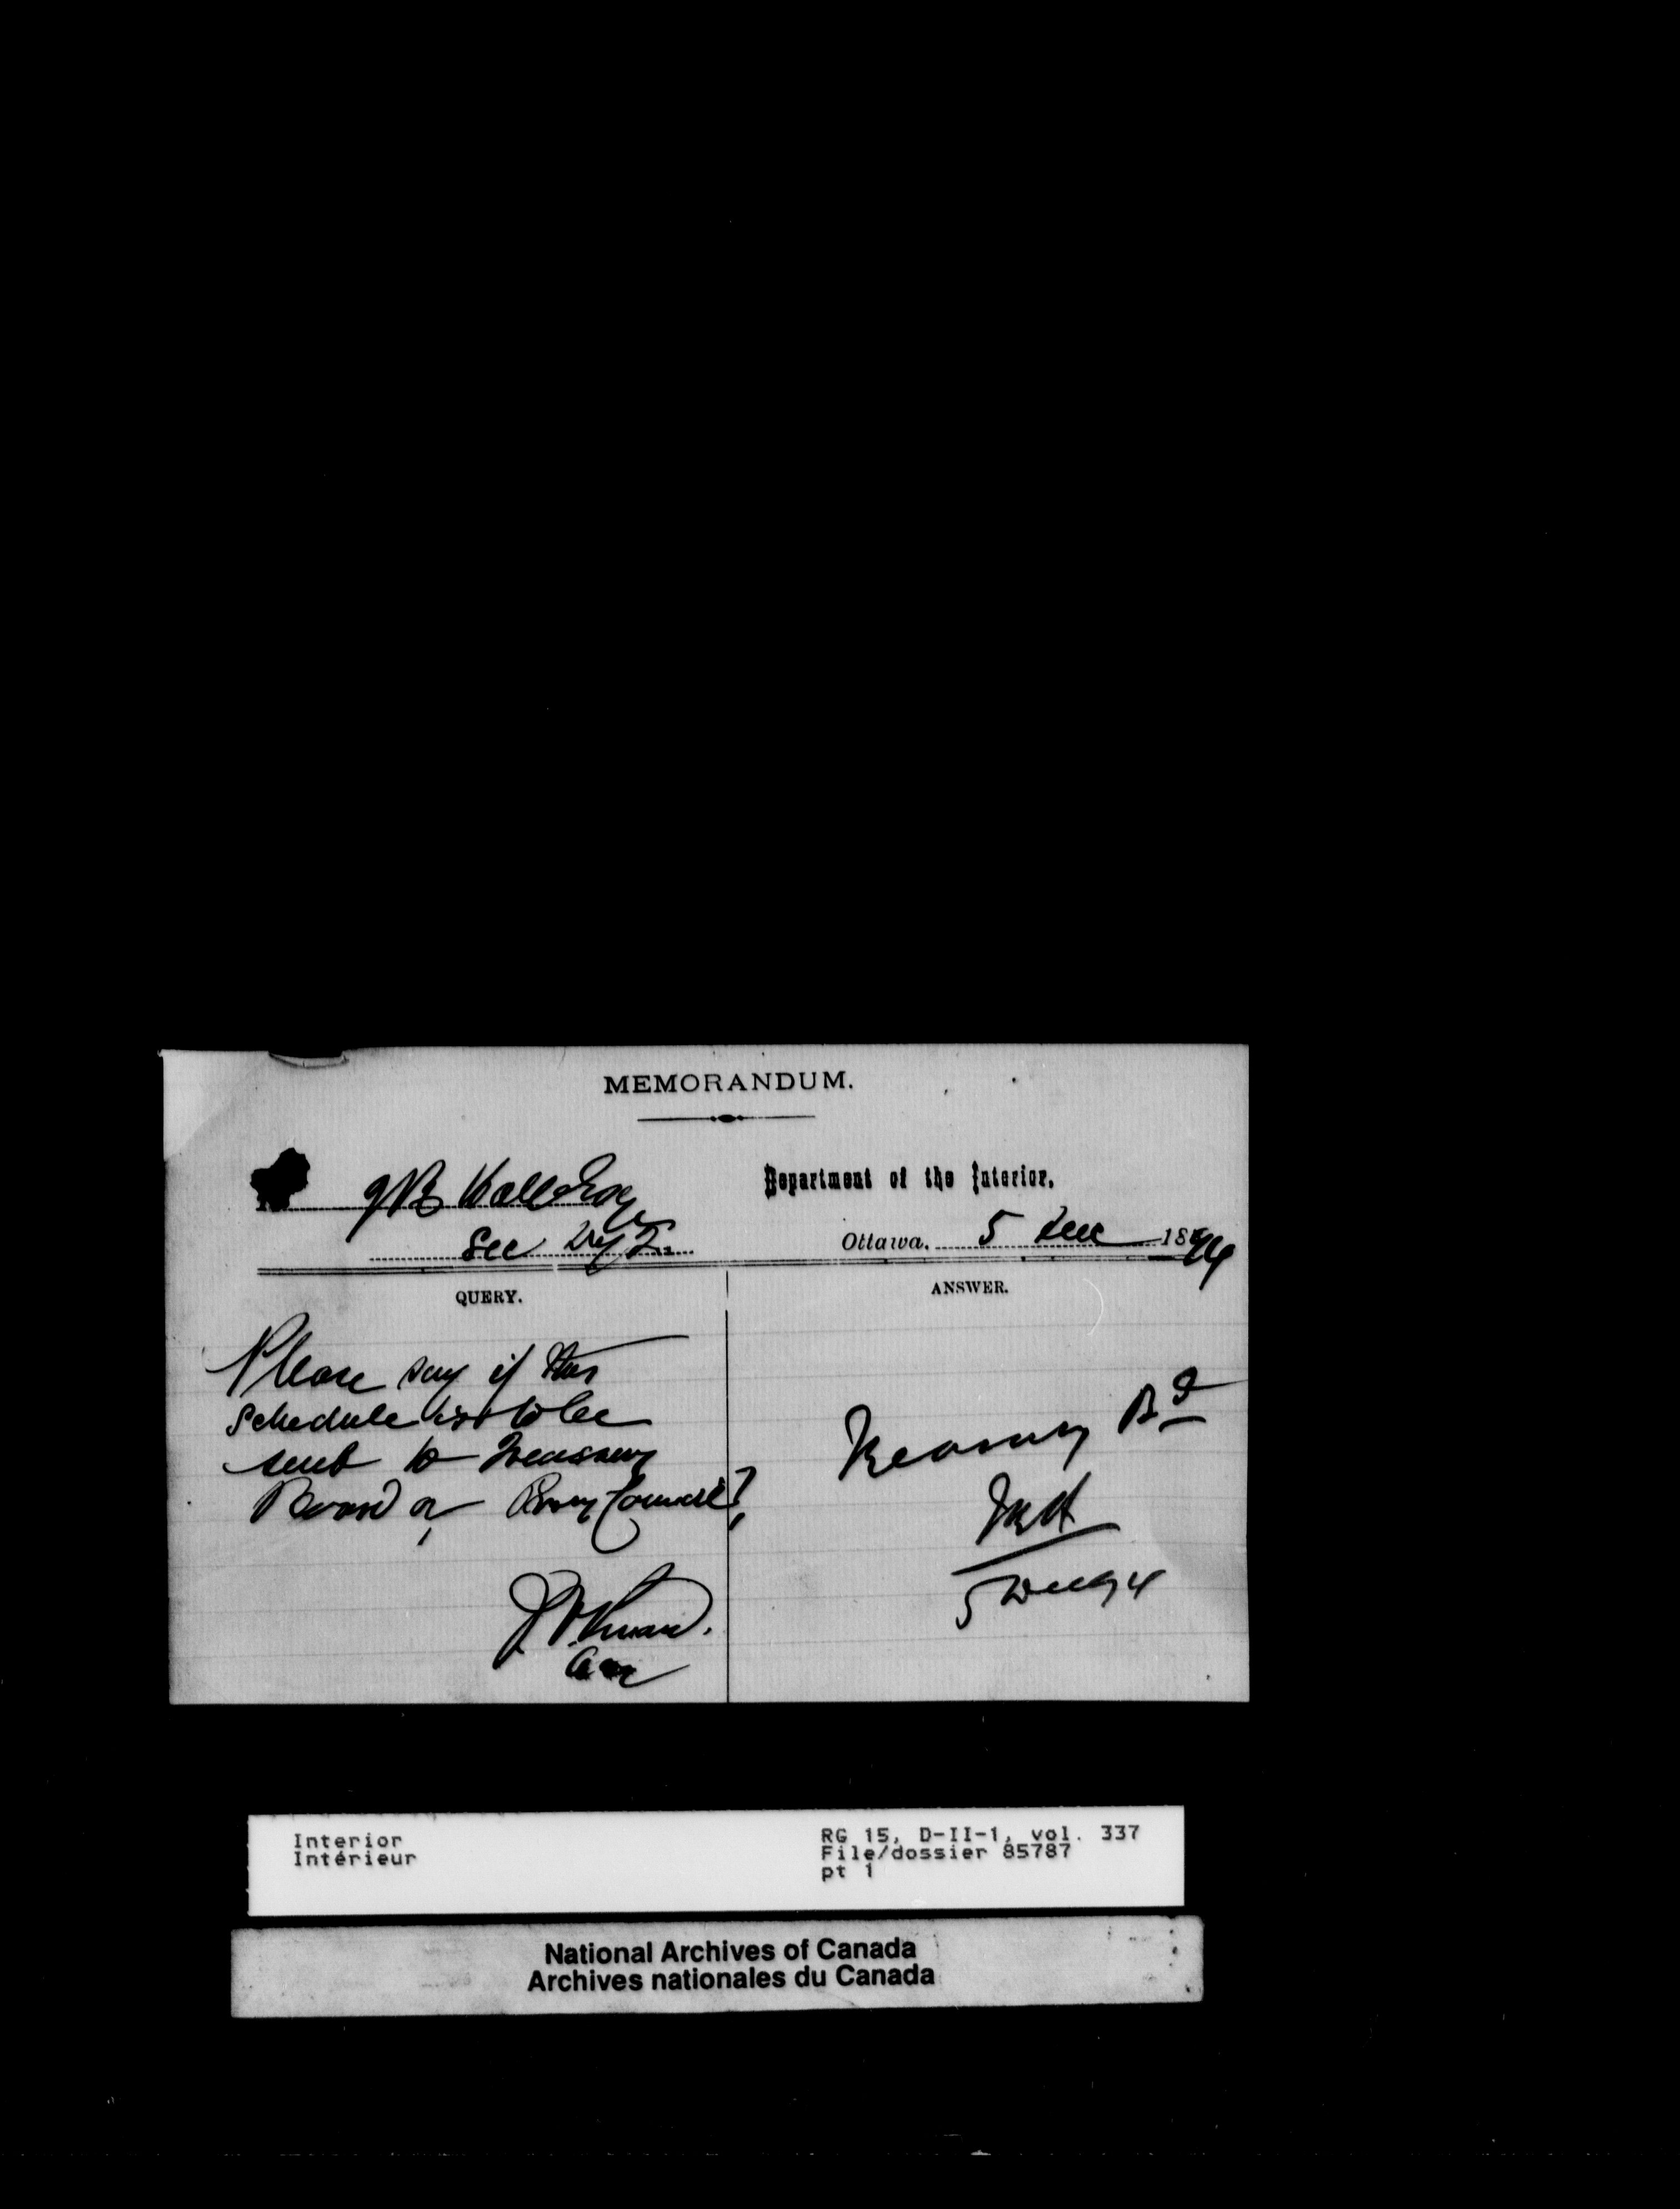 MEMORANDUM.
J R Hall Esq
Sec
Department of the Interior.
Ottawa, 5 Dec 1894
QUERY.
Please say if this
schedule is to be
sent to Treasury
Board or Privy Council?
ANSWER.
Treasury Bd
JRH
5 Dec 94
Interior
Intérieur
RG 15, D-II-1, vol. 337
File/dossier 85787
pt 1
National Archives of Canada
Archives nationales du Canada